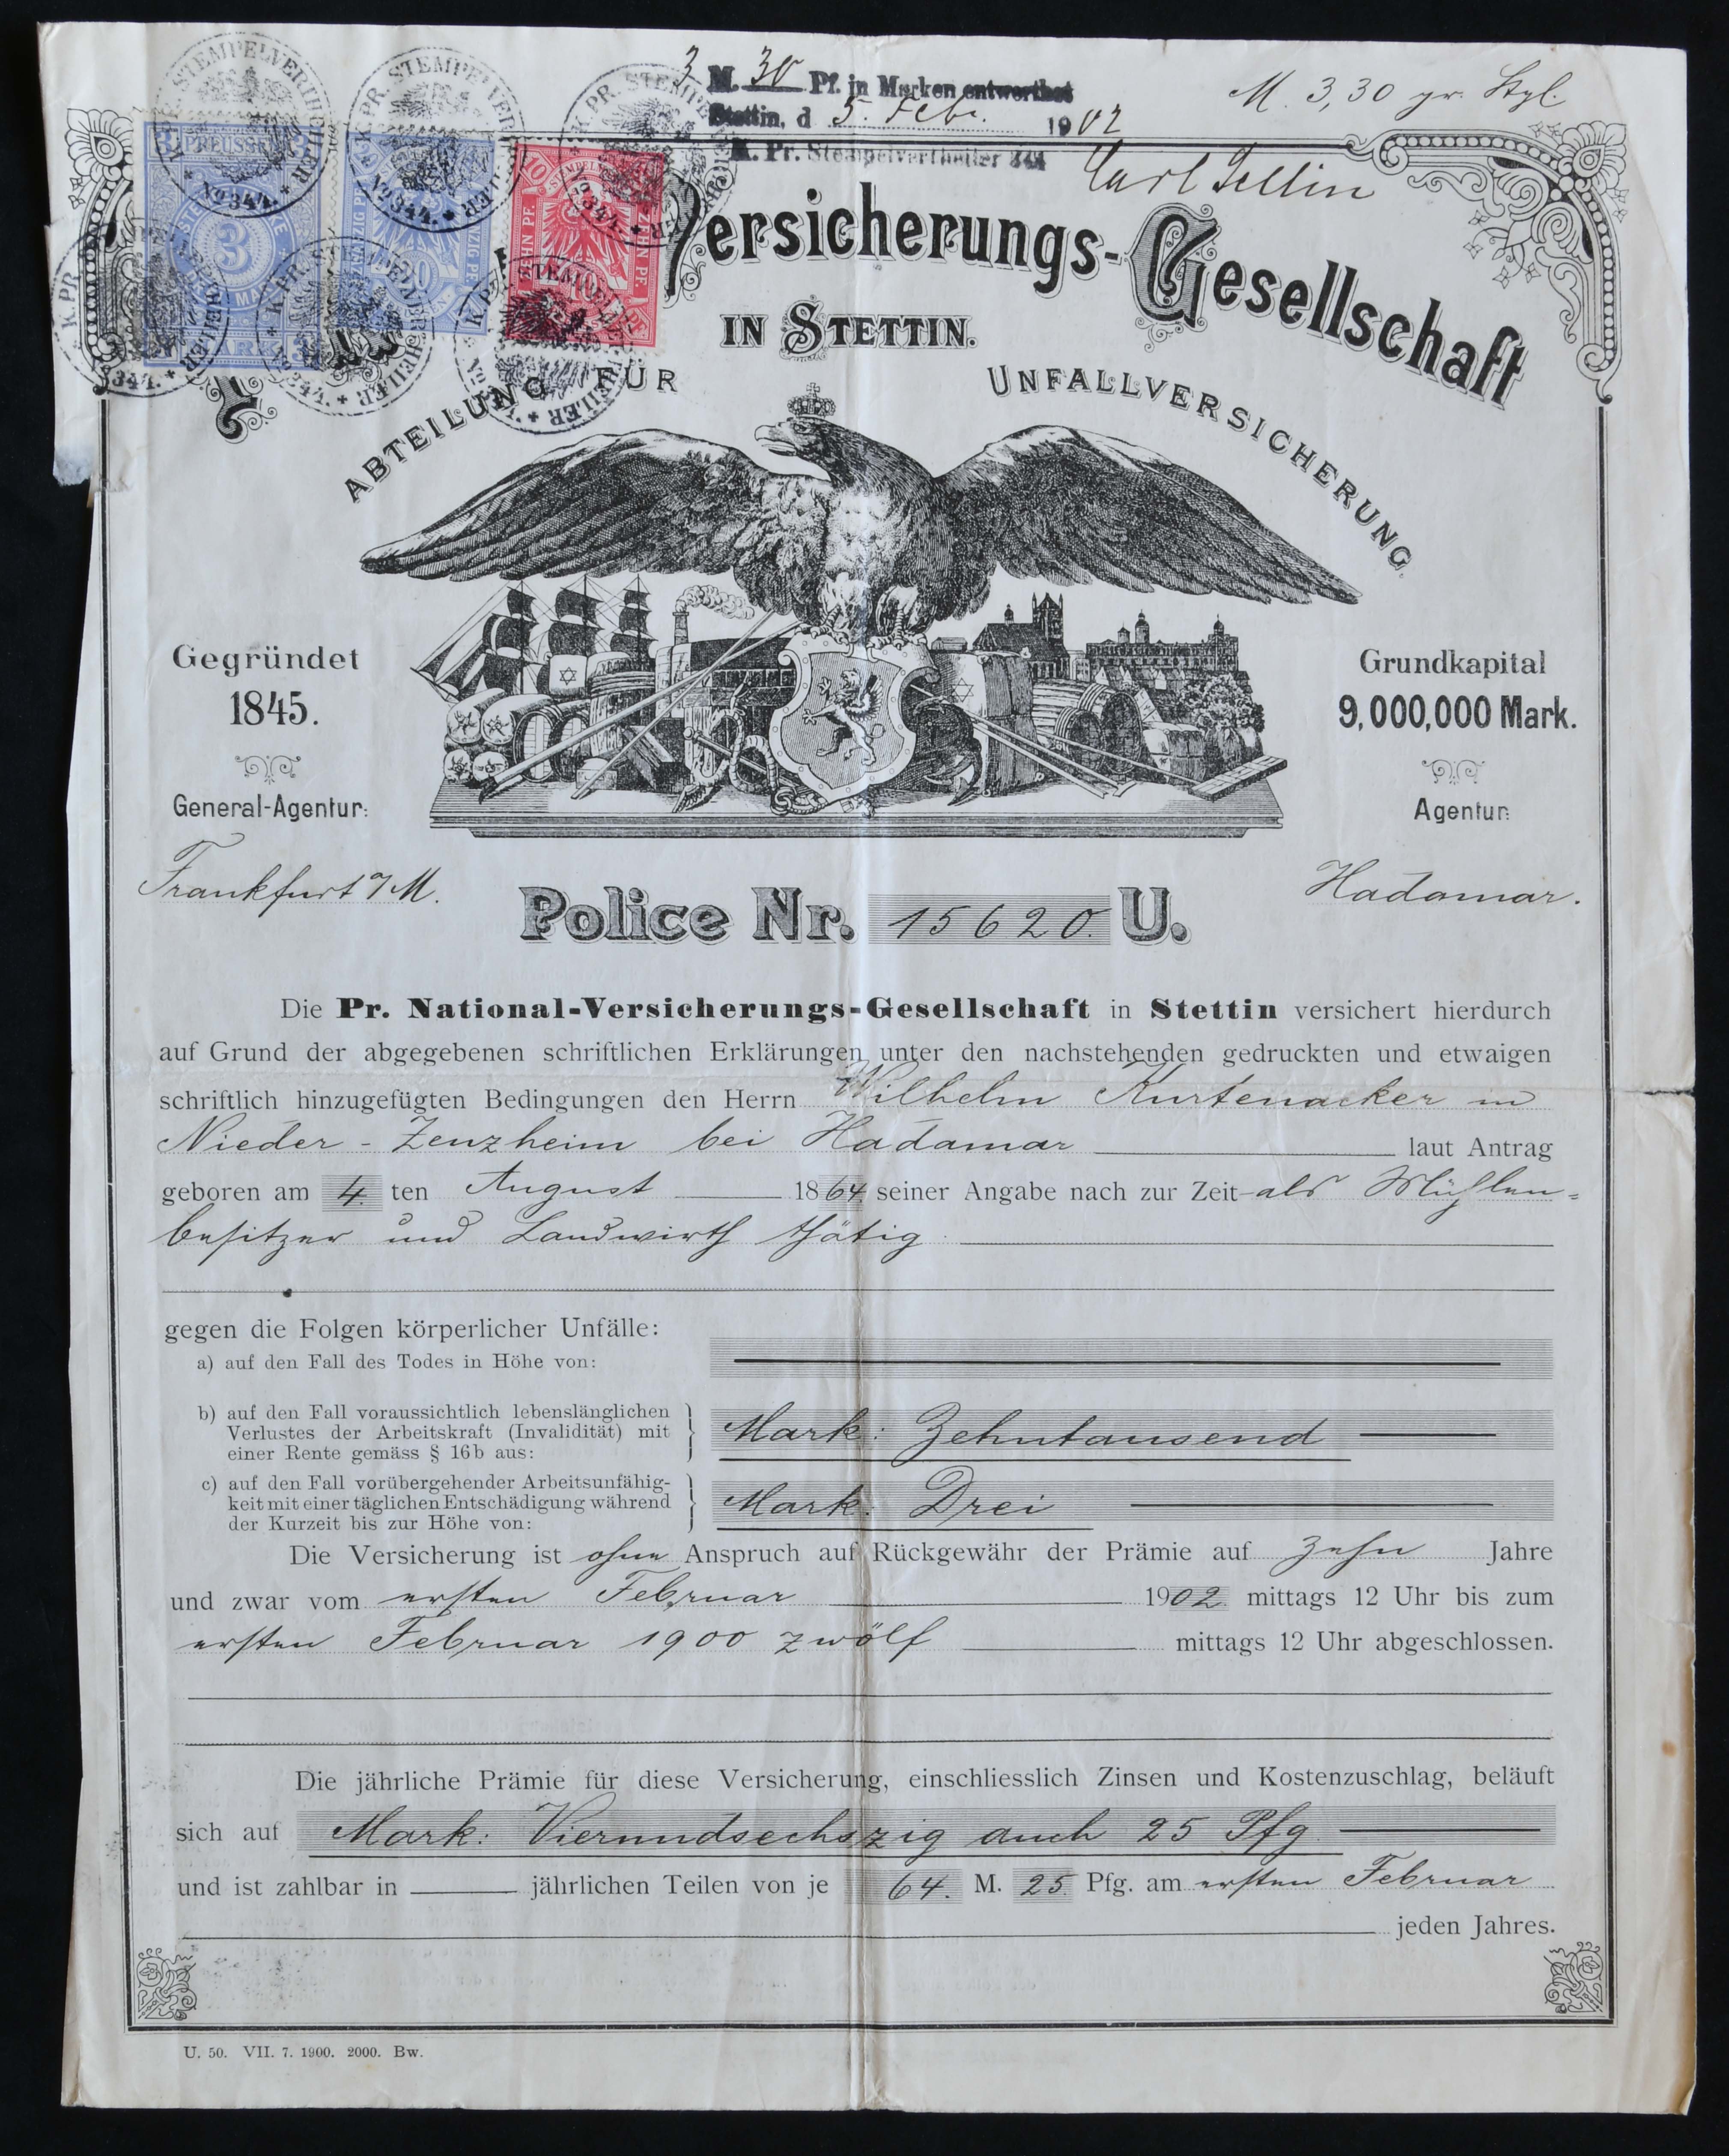 3 M. 30 Pf. in Marken entwerthet
Stettin, d 5. Feb. 1902
K. Pr. Stempelvertheiler 344
M. 3,30 pr. Stpl.
K. PR. STEMPELVERTHEILER
No 344.
PREUSSEN
3
MARK
ZEHN PF.
10
Versicherungs-Gesellschaft
IN STETTIN.
ABTEILUNG FÜR UNFALLVERSICHERUNG.
Gegründet
1845.
Grundkapital
9,000,000 Mark.
General-Agentur:
Agentur:
Frankfurt a/M.
Hadamar.
Police Nr. 15620. U.
Die Pr. National-Versicherungs-Gesellschaft in Stettin versichert hierdurch
auf Grund der abgegebenen schriftlichen Erklärungen unter den nachstehenden gedruckten und etwaigen
schriftlich hinzugefügten Bedingungen den Herrn Wilhelm Kurtenacker in
Nieder-Zeuzheim bei Hadamar laut Antrag
geboren am 4. ten August 1864 seiner Angabe nach zur Zeit als Mühlen=
besitzer und Landwirth thätig
gegen die Folgen körperlicher Unfälle:
a) auf den Fall des Todes in Höhe von:
b) auf den Fall voraussichtlich lebenslänglichen
Verlustes der Arbeitskraft (Invalidität) mit
einer Rente gemäss § 16b aus:
Mark: Zehntausend
c) auf den Fall vorübergehender Arbeitsunfähig-
keit mit einer täglichen Entschädigung während
der Kurzeit bis zur Höhe von:
Mark: Drei
Die Versicherung ist ohne Anspruch auf Rückgewähr der Prämie auf zehn Jahre
und zwar vom ersten Februar 1902 mittags 12 Uhr bis zum
ersten Februar 1900 zwölf mittags 12 Uhr abgeschlossen.
Die jährliche Prämie für diese Versicherung, einschliesslich Zinsen und Kostenzuschlag, beläuft
sich auf Mark: Vierundsechszig auch 25 Pfg
und ist zahlbar in jährlichen Teilen von je 64. M. 25. Pfg. am ersten Februar
jeden Jahres.
U. 50. VII. 7. 1900. 2000. Bw.